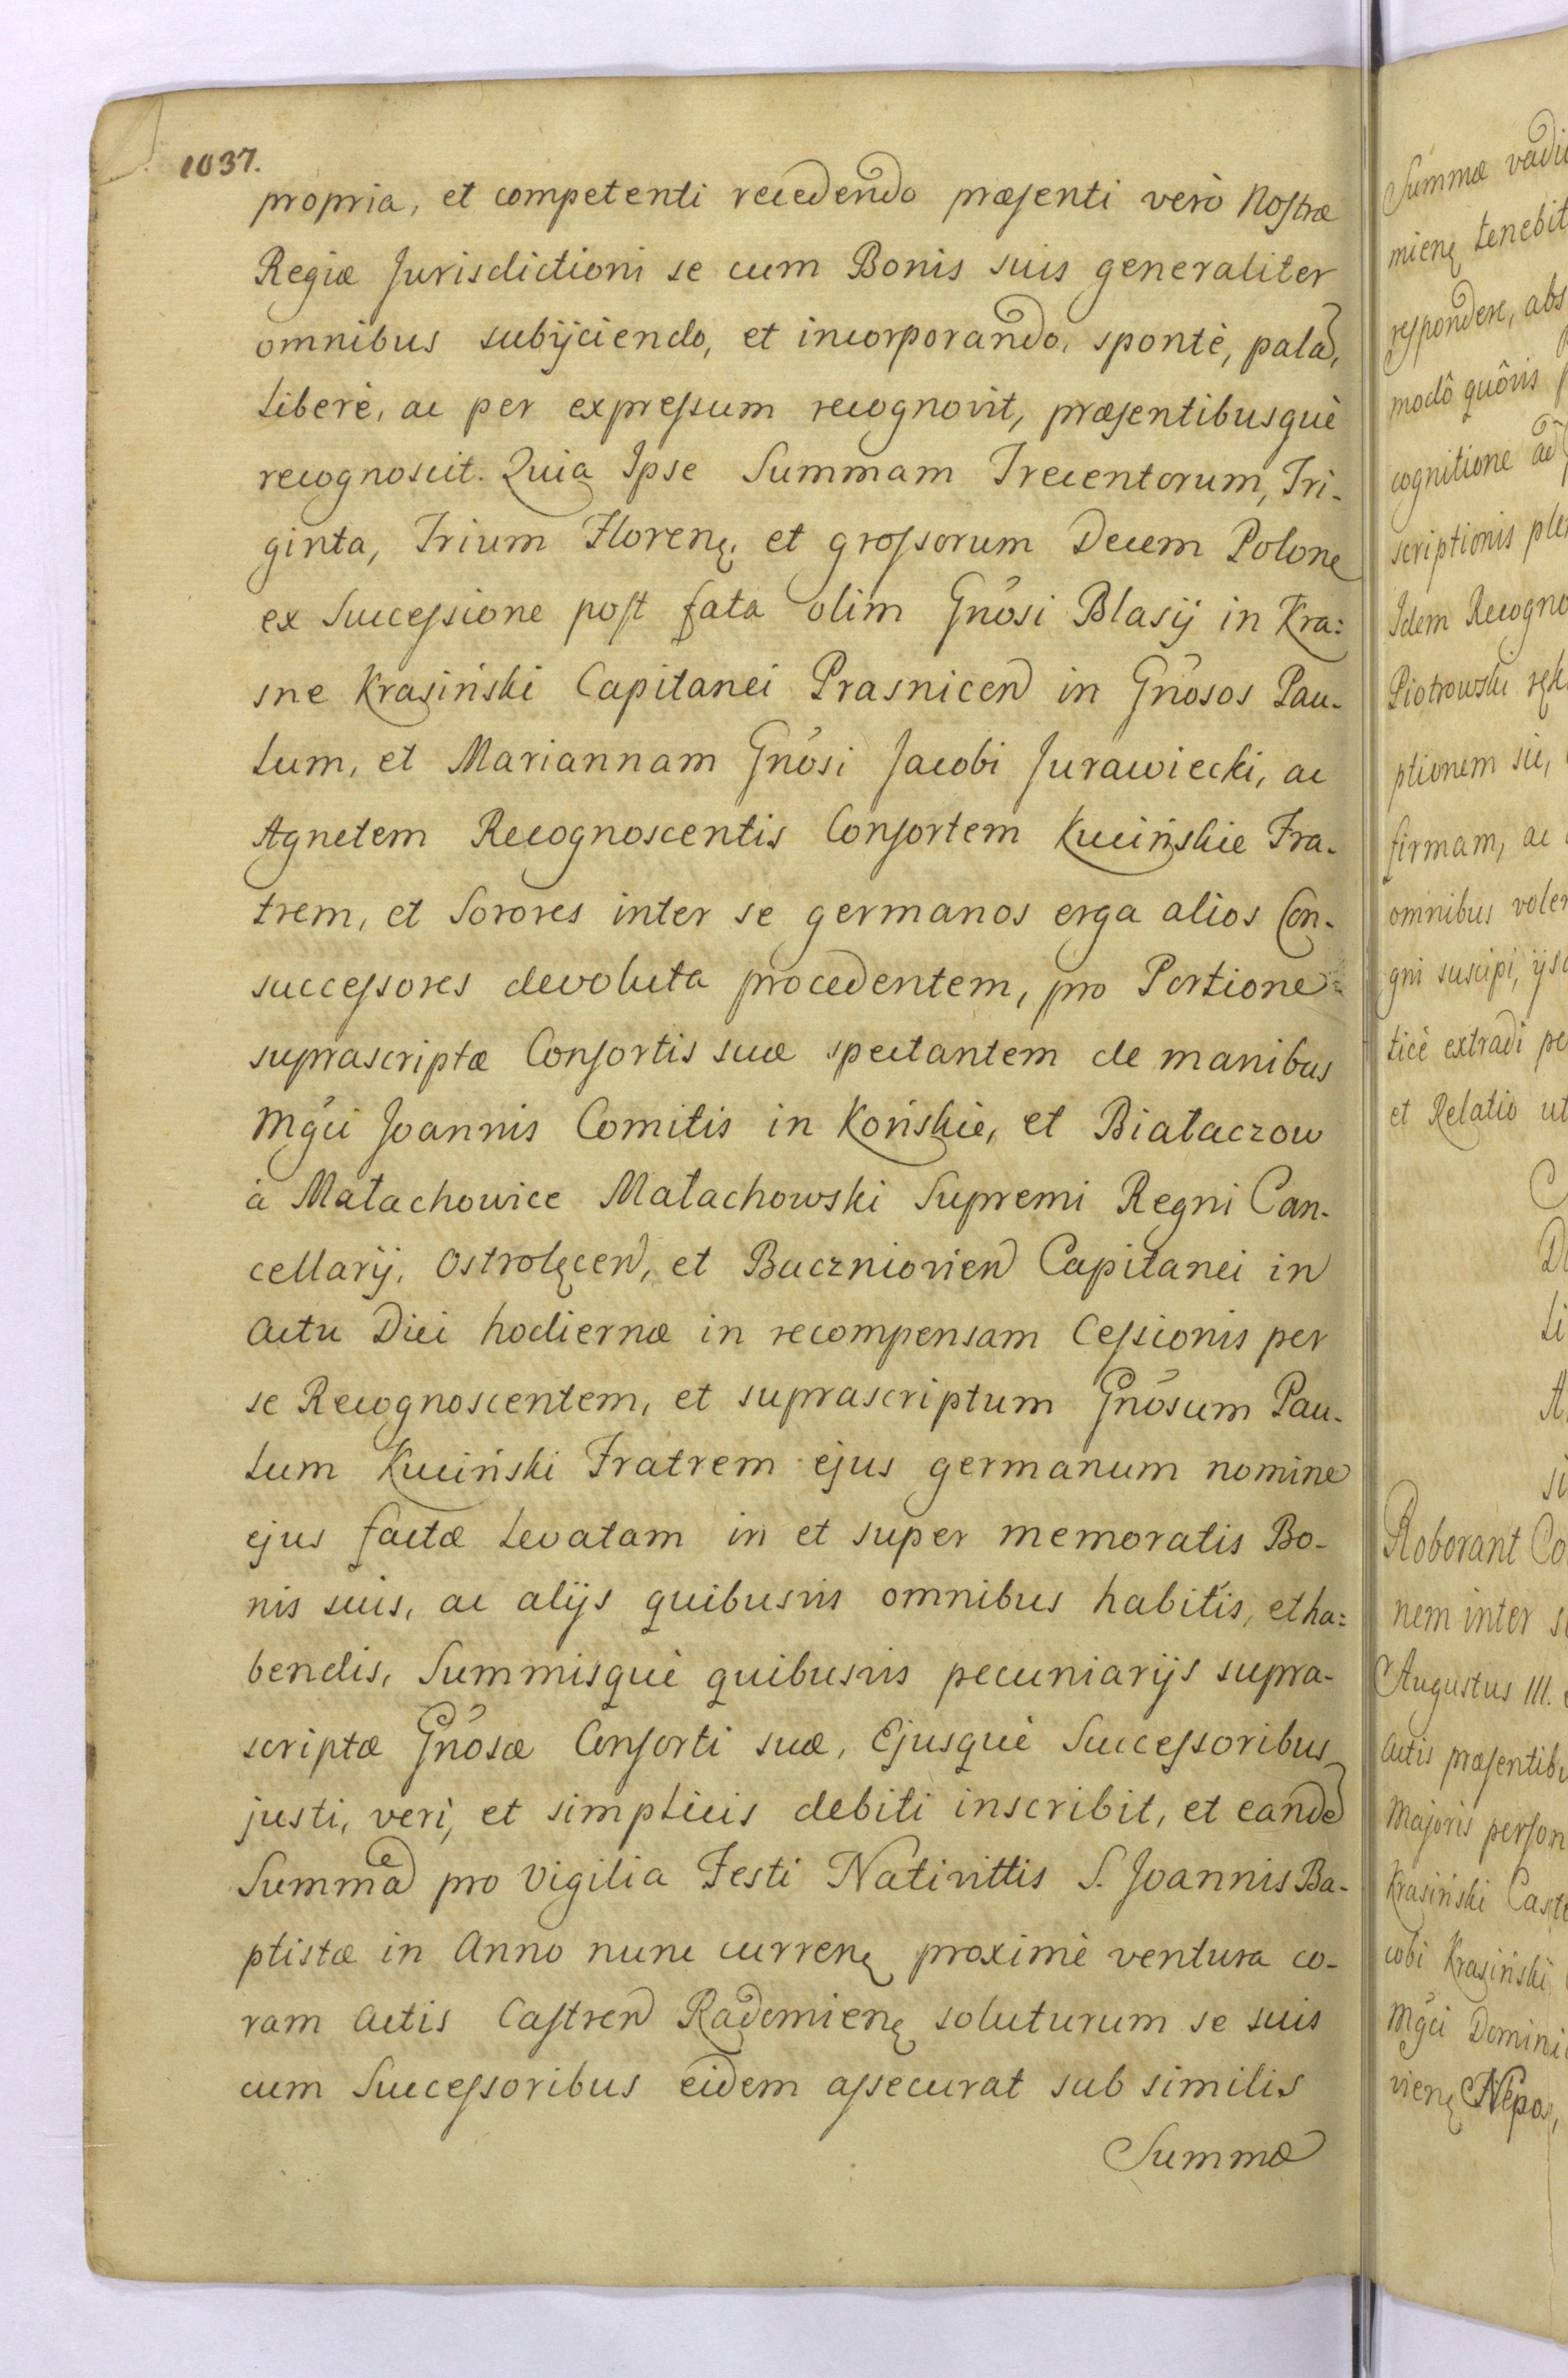 1037.
propria, et competenti recedendo præsenti verò Nostræ
Regiæ Jurisdictioni se cum Bonis suis generaliter
omnibus subijciendo, et incorporando, spontè, palã,
liberè, ac per expressum recognovit, præsentibusquè
recognoscit. Quia Ipse Summam Trecentorum, Tri-
ginta, Trium Florenę. et grossorum Decem Polonę
ex Successione post fata olim Gñosi Blasij in Kra:
sne Krasiński Capitanei Prasnicen in Gñosos Pau-
lum, et Mariannam Gñosi Jacobi Jurawiecki, ac
Agnetem Recognoscentis Consortem Kucińskie Fra-
trem, et Sorores inter se germanos erga alios Con-
successores devoluta procedentem, pro Portione
suprascriptæ Consortis suæ spectantem de manibus
Mgci Joannis Comitis in Końskie, et Białaczow
à Małachowice Małachowski Supremi Regni Can-
cellarij, Ostrołęcen, et Baczniovien Capitanei in
Actu Diei hodiernæ in recompensam Cessionis per
se Recognoscentem, et suprascriptum Gñosum Pau-
lum Kuciński Fratrem ejus germanum nomine
ejus factæ levatam in et super memoratis Bo-
nis suis, ac alijs quibusvis omnibus habitis, et ha:
bendis, Summisquè quibusvis pecuniarijs supra-
scriptæ Gñosæ Consorti suæ, Ejusquè Successoribus
justi, veri, et simplicis debiti inscribit, et eandẽ
Summã pro Vigilia Festi Nativittis S. Joannis Ba-
ptistæ in Anno nunc currenę proximè ventura co-
ram Actis Castren Radomienę soluturum se suis
cum Successoribus eidem assecurat sub similis
Summæ
Summæ vadii
mienę tenebit
respondere, abs
modô quôvis
cognitione ac
scriptionis ple
Idem Recogno
Piotrowski ręk
ptionem sic,
firmam, ac
omnibus volen
gni suscipi, ijsd
ticè extradi pe
et Relatio ut
Roborant Co
nem inter s
Augustus III.
Actis præsentibu
Majoris person
Krasiński Caste
cobi Krasiński
Mgci Domini
vienę Nepos,